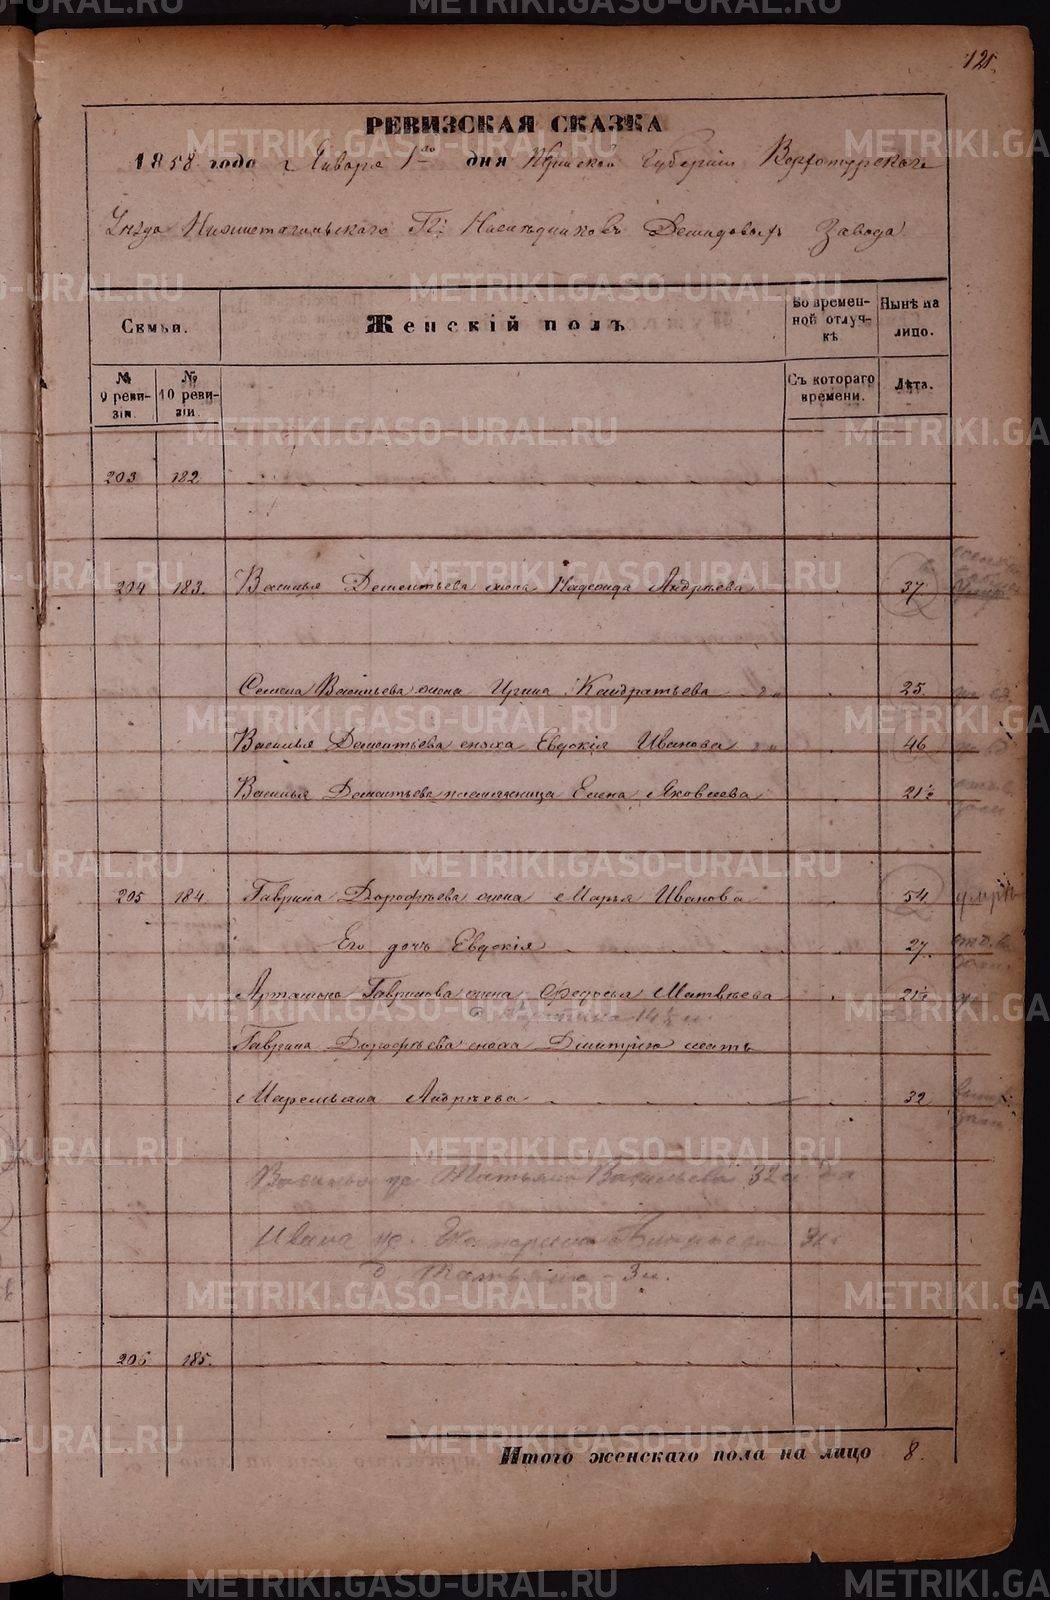 121.
РЕВИЗСКАЯ СКАЗКА
1858 года Января 1го дня Пермской Губерніи Верхотурскаго
Уѣзда Нижнетагильскаго Гг: Наслѣдниковъ Демидовыхъ Завода
Семьи.
Женскій полъ
Во времен-
ной отлуч-
кѣ
Нынѣ на
лицо.
№
9 реви-
зіи.
№
10 реви-
зіи.
Съ котораго
времени.
Лѣта.
203 182
204 183. Василья Дементьева жена Надежда Андрѣева 37
Семена Васильева жена Ирина Кондратьева 25.
Василья Дементьева сноха Евдокія Иванова 46
Василья Дементьева племянница Елена Яковлева 21½
205 184 Гаврила Дорофѣева жена Марья Иванова 54 умре
Его дочь Евдокія 27.
Артамона Гаврилова жена Федосья Матвѣева 21½
14½ н.
Гаврила Дорофѣева сноха Дмитрію мать
Маремьяна Андрѣева 32
Татьяна Васильева 32
Ивана
Татьяна 3 н.
206 185.
Итого женскаго пола на лицо 8.
METRIKI.GASO-URAL.RU